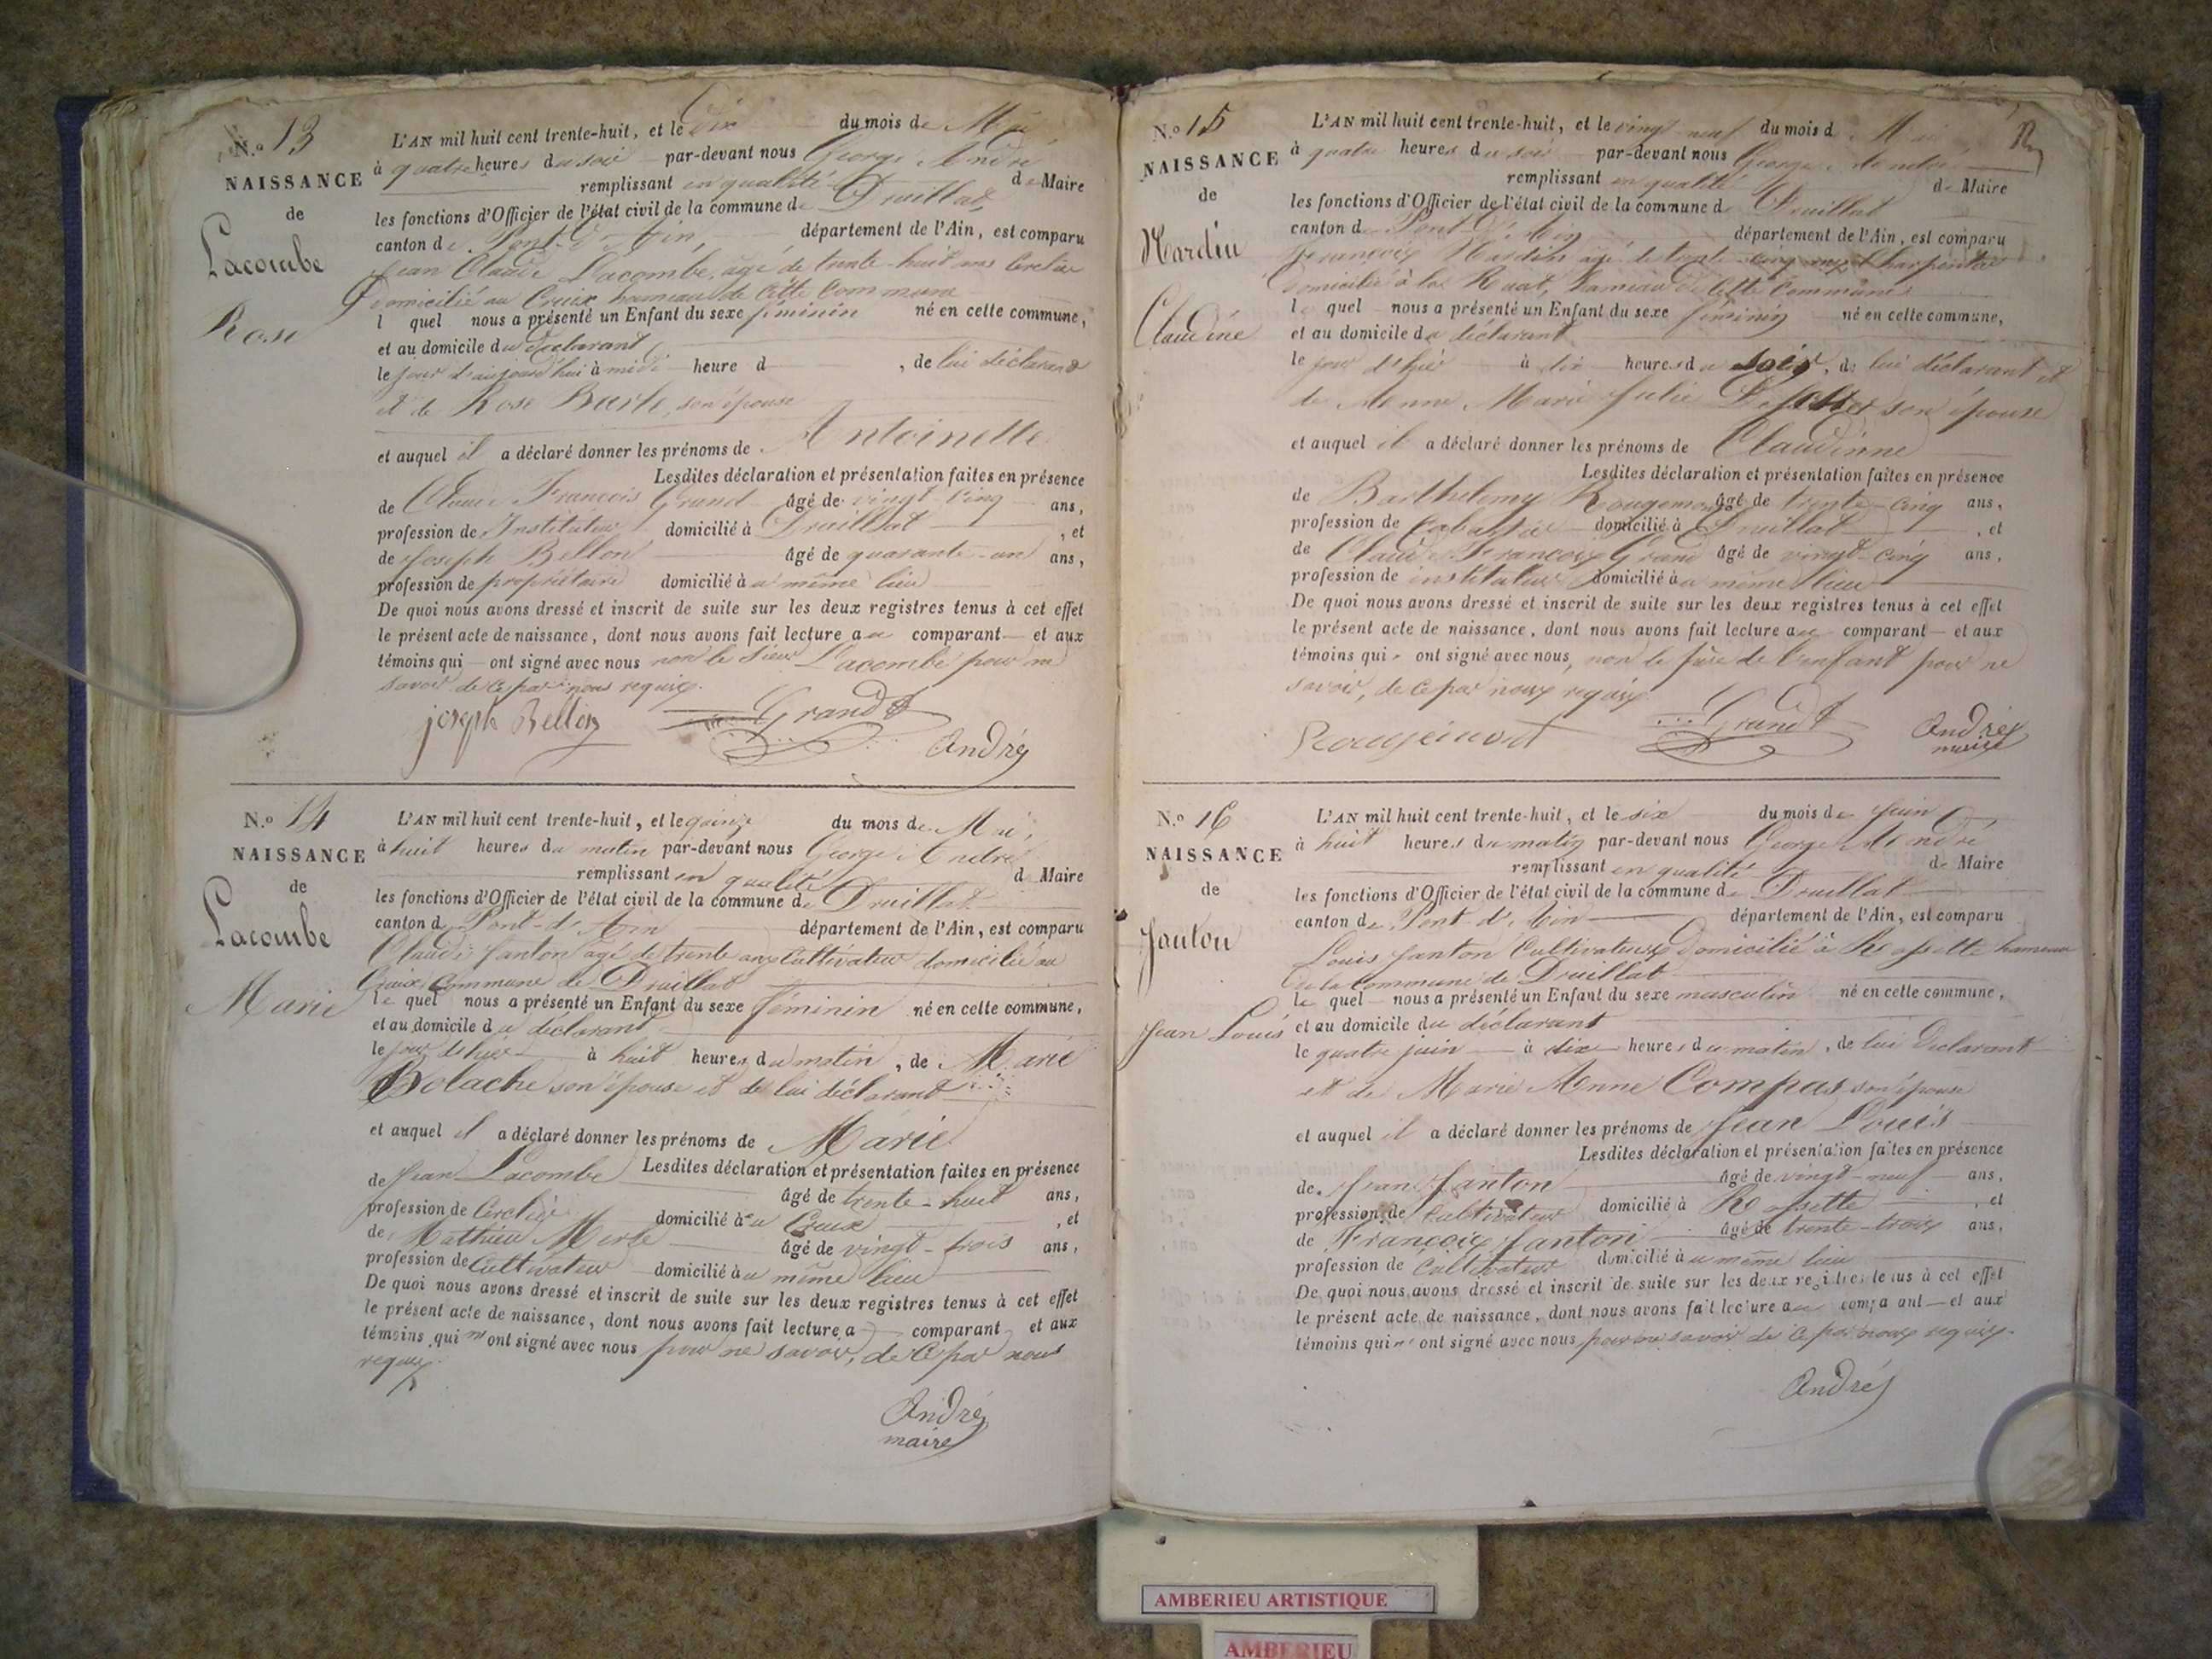 N.o 13
NAISSANCE
de
Lacombe
Rose
L'AN mil huit cent trente-huit, et le Dix du mois de Mai
à quatre heures du soir par-devant nous George André
remplissant en qualité de Maire
les fonctions d'Officier de l'état civil de la commune de Druillat,
canton de Pont-d'Ain, département de l'Ain, est comparu
Jean Claude Lacombe, âgé de trente-huit ans Cerclier
Domicilié au Creux hameau de cette Commune
l quel nous a présenté un Enfant du sexe féminin né en cette commune,
et au domicile du déclarant
le jour d'aujourd'hui à midi heure d , de lui déclarant
et de Rose son épouse
et auquel il a déclaré donner les prénoms de Antoinette
Lesdites déclaration et présentation faites en présence
de Claude François Grand âgé de vingt cinq ans,
profession de Instituteur domicilié à Druillat , et
de Joseph Bellon âgé de quarante-un ans,
profession de propriétaire domicilié au même lieu
De quoi nous avons dressé et inscrit de suite sur les deux registres tenus à cet effet
le présent acte de naissance, dont nous avons fait lecture au comparant et aux
témoins qui ont signé avec nous non le sieur Lacombe pour ne
savoir de ce par nous requis.
joseph Bellon Grand André
N.o 14
NAISSANCE
de
Lacombe
Marie
L'AN mil huit cent trente-huit, et le quinze du mois de Mai,
à huit heures du matin par-devant nous George André
remplissant en qualité d Maire
les fonctions d'Officier de l'état civil de la commune de Druillat
canton de Pont-d'Ain département de l'Ain, est comparu
Claude Janton âgé de trente ans Cultivateur domicilié au
Creux Commune de Druillat
le quel nous a présenté un Enfant du sexe féminin né en cette commune,
et au domicile du déclarant
le jour d'hier à huit heures du matin, de Marie
Bolache son épouse et de lui déclarant
et auquel il a déclaré donner les prénoms de Marie
Lesdites déclaration et présentation faites en présence
de Jean Lacombe âgé de trente-huit ans,
profession de Cerclier domicilié au Creux , et
de Mathieu Merle âgé de vingt-trois ans,
profession de Cultivateur domicilié au même lieu
De quoi nous avons dressé et inscrit de suite sur les deux registres tenus à cet effet
le présent acte de naissance, dont nous avons fait lecture a comparant et aux
témoins qui n'ont signé avec nous pour ne savoir, de ce par nous
requis.
André
maire
N.o 15
NAISSANCE
de
Hardin
Claudine
L'AN mil huit cent trente-huit, et le vingt-neuf du mois d Mai
à quatre heures du soir par-devant nous George André
remplissant en qualité de Maire
les fonctions d'Officier de l'état civil de la commune de Druillat
canton d Pont-d'Ain département de l'Ain, est comparu
François âgé de trente-cinq ans Charpentier
Domicilié à la Ruat, hameau de cette Commune
le quel nous a présenté un Enfant du sexe féminin né en cette commune,
et au domicile du déclarant
le jour d'hier à dix heures du soir, de lui déclarant et
de Anne Marie Julie son épouse
et auquel il a déclaré donner les prénoms de Claudinne
Lesdites déclaration et présentation faites en présence
de Barthelemy Rougemont âgé de trente-cinq ans,
profession de domicilié à Druillat , et
de Claude François Grand âgé de vingt-cinq ans,
profession de instituteur domicilié au même lieu
De quoi nous avons dressé et inscrit de suite sur les deux registres tenus à cet effet
le présent acte de naissance, dont nous avons fait lecture au comparant et aux
témoins qui ont signé avec nous, non le père de l'enfant pour ne
savoir, de ce par nous requis.
Rougemont Grand André
maire
N.o 16
NAISSANCE
de
Janton
Jean Louis
L'AN mil huit cent trente-huit, et le six du mois de juin
à huit heures du matin par-devant nous George André
remplissant en qualité de Maire
les fonctions d'Officier de l'état civil de la commune de Druillat
canton de Pont-d'Ain département de l'Ain, est comparu
Louis Janton Cultivateur Domicilié à Rossette hameau
de la Commune de Druillat
le quel nous a présenté un Enfant du sexe masculin né en cette commune,
et au domicile du déclarant
le quatre juin à dix heures du matin, de lui Déclarant
et de Marie Anne Compas, son épouse
et auquel il a déclaré donner les prénoms de Jean Louis
Lesdites déclaration et présentation faites en présence
de Jean Janton âgé de vingt-neuf ans,
profession de Cultivateur domicilié à Rossette , et
de François Janton âgé de trente-trois ans,
profession de Cultivateur domicilié au même lieu
De quoi nous avons dressé et inscrit de suite sur les deux registres tenus à cet effet
le présent acte de naissance, dont nous avons fait lecture au comparant et aux
témoins qui n'ont signé avec nous pour ne savoir de ce par nous requis.
André
AMBERIEU ARTISTIQUE
AMBERIEU